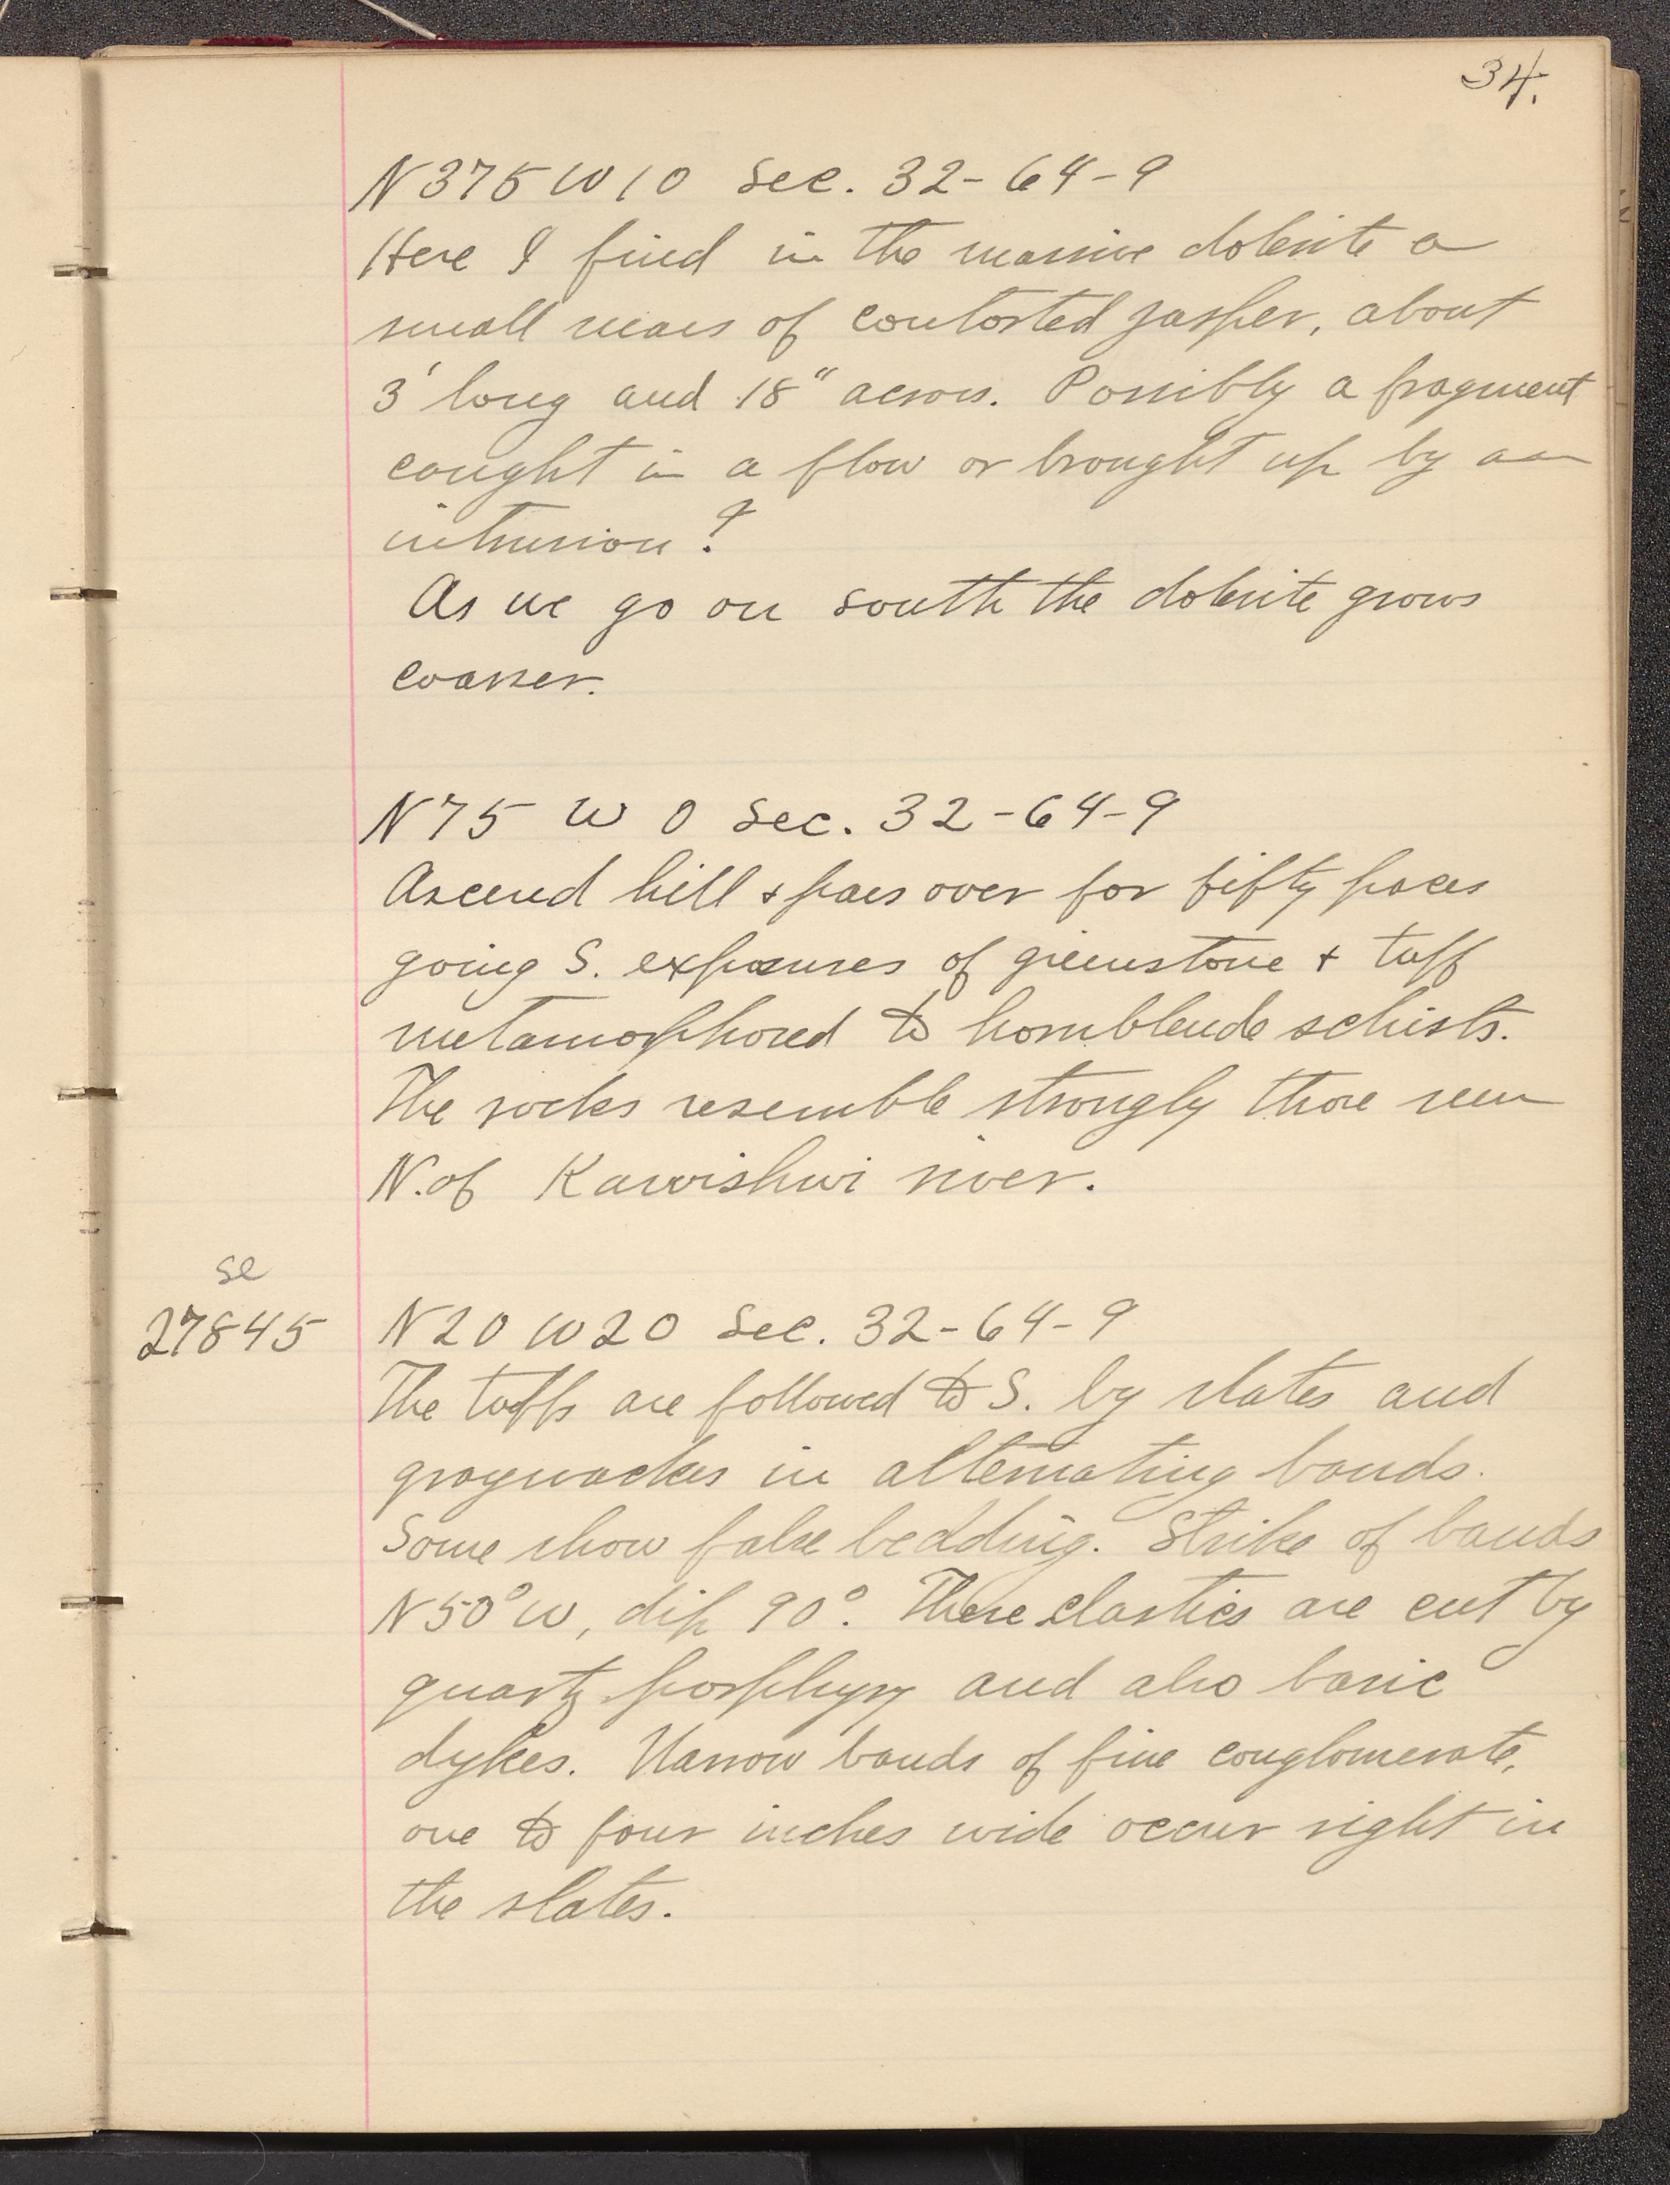 34.
N375 W10 Sec. 32-64-9
Here I find in the massive dolerite a
small mass of contorted jasper, about
3' long and 18" across. Possibly a fragment
caught in a flow or brought up by an
intrusion?
As we go on south the dolerite grows
coarser.
N75 W 0 Sec. 32-64-9
Ascend hill & pass over for fifty paces
going S. exposures of greenstone + tuff
metamorphosed to hornblende schists.
The rocks resemble strongly those seen
N. of Kawishwi river.
se
27845
N20 W20 Sec. 32-64-9
The tuffs are followed to S. by slates and
graywackes in alternating bands.
Some show false bedding. Strike of bands
N50°W, dip 90°. These clastics are cut by
quartz porphyry and also basic
dykes. Narrow bands of fine conglomerate,
one to four inches wide occur right in
the slates.